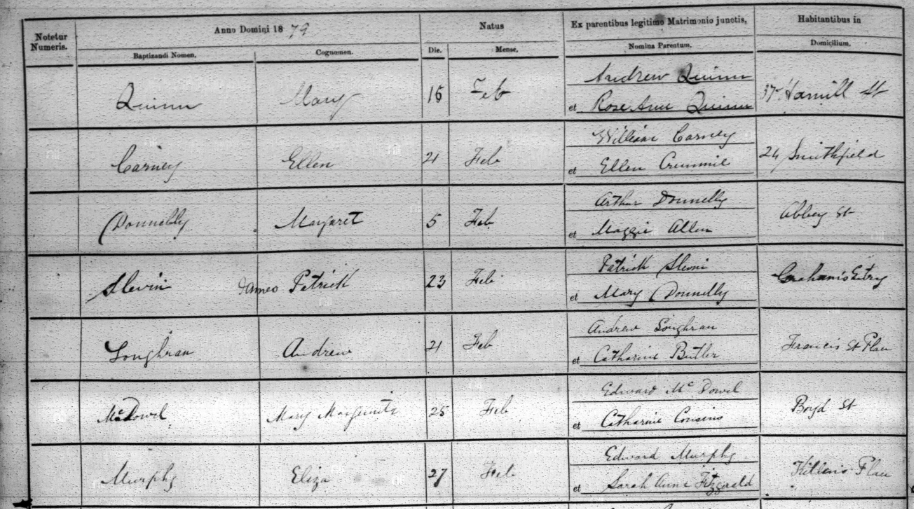 Notetur Numeris. Anno Domini 1879 Natus Ex parentibus legitimo Matrimonio junctis, Habitantibus in
Baptizandi Nomen. Cognomen. Die. Mense. Nomina Parentum. Domicilium.
Andrew Quinn
Quinn Mary 16 Feb 37 Hamill St
et Rose Ann Quinn
William Carney
Carney Ellen 21 Feb 24 Smithfield
et Ellen
Arthur Donnelly
Donnelly Margaret 5 Feb Abbey St
et Maggie Allen
Patrick
Slevin James Patrick 23 Feb Entry
et Mary Donnelly
Andrew Loughran
Loughran Andrew 21 Feb Francis St Place
et Catharine Butler
Edward Mc Dowel
McDowel Mary 25 Feb Boyd St
et Catharine Cousins
Edward Murphy
Murphy Eliza 27 Feb
et Sarah Anne Fitzgerald